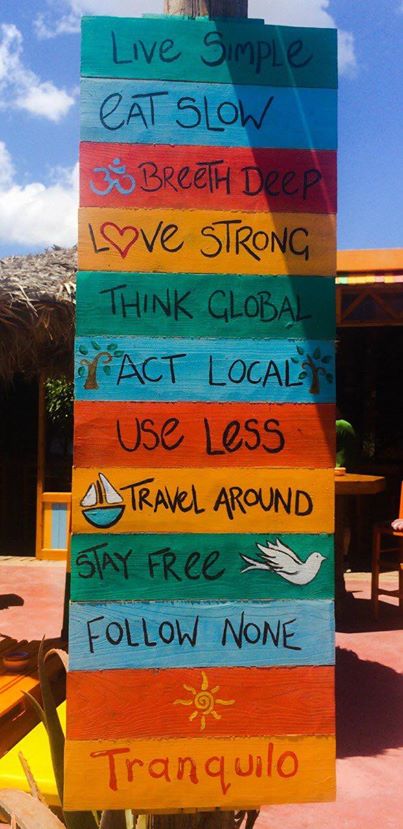 Live Simple
eat slow
ॐ Breeth Deep
Love strong
Think Global
Act Local
Use Less
Travel Around
Stay Free
Follow None
Tranquilo